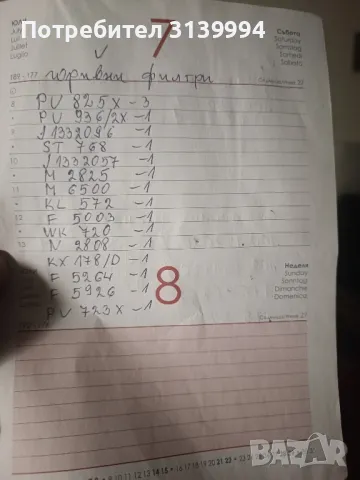 Потребител 3139994
7
Юли
Juli
Luglio
Събота
Saturday
Samstag
Samedi
Sabato
V
189 - 177
горивни филтри
PU 825 X - 3
PU 936/2X - 1
J 1332096 - 1
ST 768 - 1
J 1332057 - 1
M 2825 - 1
M 6500 - 1
KL 572 - 1
F 5003 - 1
WK 720 - 1
N 2808 - 1
KX 178/D - 1
F 5264 - 1
F 5926 - 1
PU 723 X - 1
8
Неделя
Sunday
Sonntag
Dimanche
Domenica
BAZAR